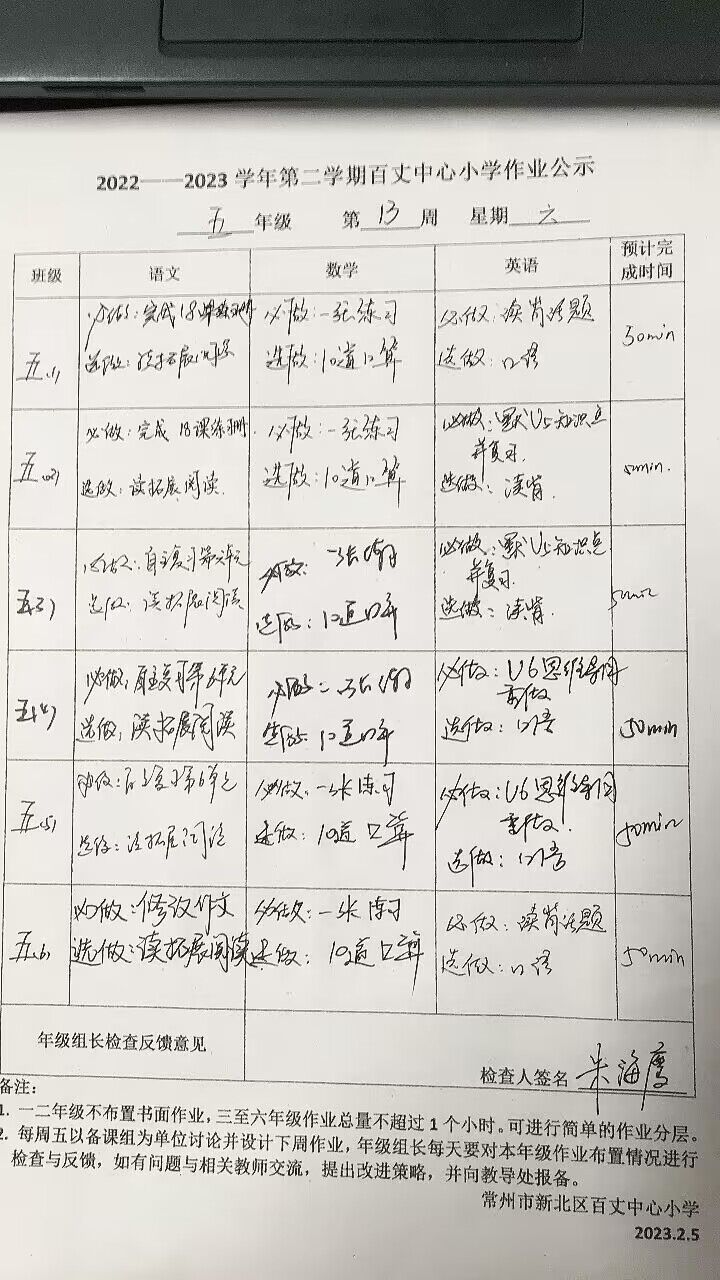 2022——2023 学年第二学期百丈中心小学作业公示
五 年级 第 13 周 星期 六
班级 语文 数学 英语 预计完成时间
五(1) 必做：完成18课练习册 必做：一张练习 必做：读背话题 50min
选做：读拓展阅读 选做：10道口算 选做：口语
五(2) 必做：完成18课练习册 必做：一张练习 必做：默U5知识点
并复习
选做：读拓展阅读 选做：10道口算 选做：读背 50min
五(3) 必做：自主复习第六单元 必做：一张练习 必做：默U5知识点
并复习
选做：读拓展阅读 选做：10道口算 选做：读背 50min
五(4) 必做：自主复习第6单元 必做：一张练习 必做：U6思维导图
重做
选做：读拓展阅读 选做：10道口算 选做：口语 50min
五(5) 必做：自主复习第6单元 必做：一张练习 必做：U6思维导图
重做
选做：读拓展阅读 选做：10道口算 选做：口语 50min
五(6) 必做：修改作文 必做：一张练习 必做：读背话题
选做：读拓展阅读 选做：10道口算 选做：口语 50min
年级组长检查反馈意见
检查人签名 朱海鹰
备注：
1. 一二年级不布置书面作业，三至六年级作业总量不超过 1 个小时。可进行简单的作业分层。
2. 每周五以备课组为单位讨论并设计下周作业，年级组长每天要对本年级作业布置情况进行
检查与反馈，如有问题与相关教师交流，提出改进策略，并向教导处报备。
常州市新北区百丈中心小学
2023.2.5